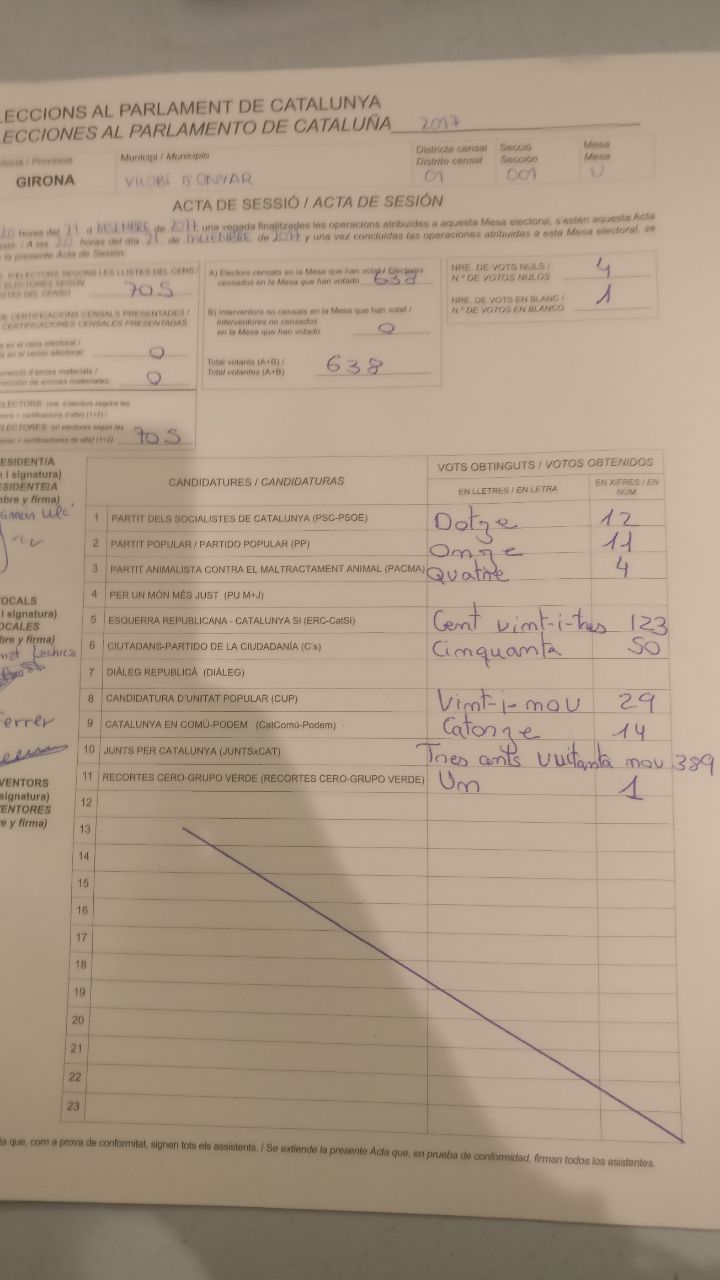 LECCIONS AL PARLAMENT DE CATALUNYA
LECCIONES AL PARLAMENTO DE CATALUÑA 2017
Municipi / Municipio
Districte censal
Distrito censal
Secció
Sección
Mesa
Mesa
GIRONA
VILOBÍ D'ONYAR
01
001
U
ACTA DE SESSIÓ / ACTA DE SESIÓN
20 hores del 21 d DESEMBRE de 2017, una vegada finalitzades les operacions atribuïdes a aquesta Mesa electoral, s'estén aquesta Acta
/ A las 20 horas del día 21 de DICIEMBRE de 2017 y una vez concluidas las operaciones atribuidas a esta Mesa electoral, se
la presente Acta de Sesión:
D'ELECTORS SEGONS LES LLISTES DEL CENS /
ELECTORES SEGÚN
DEL CENSO
705
CERTIFICACIONS CENSALS PRESENTADES /
CERTIFICACIONES CENSALES PRESENTADAS
en el cens electoral /
en el censo electoral:
0
d'errors materials /
de errores materiales:
0
ELECTORS: (nre. d'electors segons les
+ certificacions d'alta) (1+2) /
ELECTORES: (nº electores según las
+ certificaciones de alta) (1+2)
705
A) Electors censats en la Mesa que han votat / Electores
censados en la Mesa que han votado
638
B) Interventors no censats en la Mesa que han votat /
Interventores no censados
en la Mesa que han votado
0
Total votants (A+B) /
Total votantes (A+B)
638
NRE. DE VOTS NULS /
N.º DE VOTOS NULOS
4
NRE. DE VOTS EN BLANC /
N.º DE VOTOS EN BLANCO
1
ESIDENT/A
i signatura)
SIDENTE/A
bre y firma)
OCALS
i signatura)
OCALES
bre y firma)
Ferrer
VENTORS
signatura)
VENTORES
e y firma)
CANDIDATURES / CANDIDATURAS
VOTS OBTINGUTS / VOTOS OBTENIDOS
EN LLETRES / EN LETRA
EN XIFRES / EN
NÚM.
1 PARTIT DELS SOCIALISTES DE CATALUNYA (PSC-PSOE) Dotze 12
2 PARTIT POPULAR / PARTIDO POPULAR (PP) Onze 11
3 PARTIT ANIMALISTA CONTRA EL MALTRACTAMENT ANIMAL (PACMA) Quatre 4
4 PER UN MÓN MÉS JUST (PU M+J)
5 ESQUERRA REPUBLICANA - CATALUNYA SÍ (ERC-CatSí) Cent vint-i-tres 123
6 CIUTADANS-PARTIDO DE LA CIUDADANÍA (C's) Cinquanta 50
7 DIÀLEG REPUBLICÀ (DIÀLEG)
8 CANDIDATURA D'UNITAT POPULAR (CUP) Vint-i-nou 29
9 CATALUNYA EN COMÚ-PODEM (CatComú-Podem) Catorze 14
10 JUNTS PER CATALUNYA (JUNTSxCAT) Tres cents vuitanta nou 389
11 RECORTES CERO-GRUPO VERDE (RECORTES CERO-GRUPO VERDE) Un 1
12
13
14
15
16
17
18
19
20
21
22
23
ta que, com a prova de conformitat, signen tots els assistents. / Se extiende la presente Acta que, en prueba de conformidad, firman todos los asistentes.